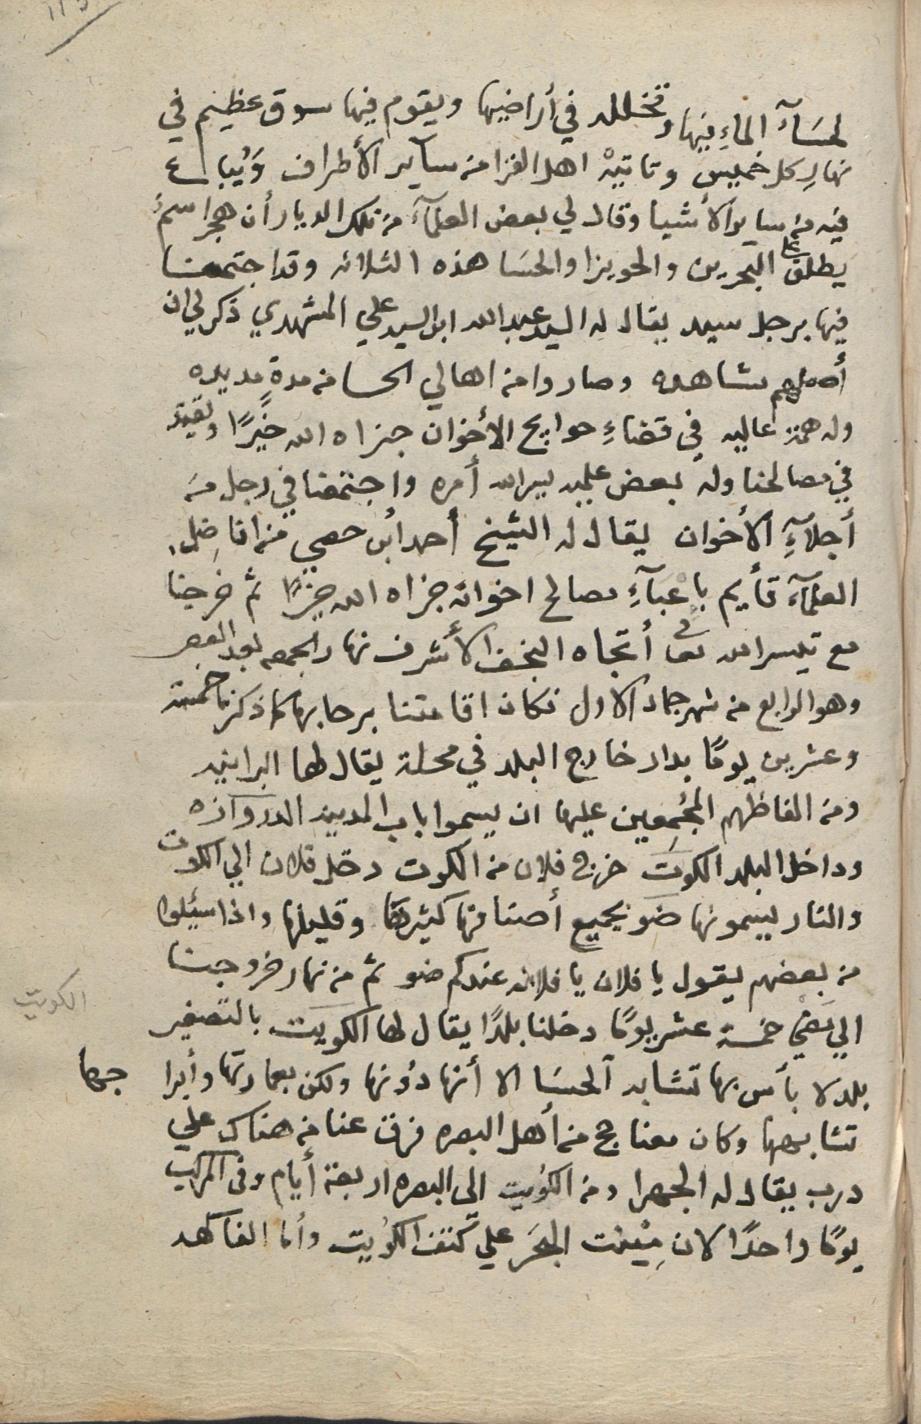 لحسآء الماء فيها وتخلله في أراضيها ويقوم فيها سوق عظيم في
نهار كل خميس وتاتيهْ اهل القرا من ساير الأطراف وَيُباع
فيه من ساير الأشيا وقال لي بعض العلمآء من تلك الديار أن هجر اسمٌ
يطلق على البحرين والحويزا والحسَا هذه الثلاثه وقد اجتمعنا
فيها برجل سيد يقال له السيد عبدالله ابن السيد علي المشهدي ذكر لي ان
أصلهم مشاهده وصاروا من اهالي الحسا من مدةٍ مديده
وله همة عاليه في قضاءِ حوايج الأخوان جزاه الله خيرًا
في مصالحنا وله بعض يسر الله أمره واجتمعنا في رجل من
أجلآءِ الأخوان يقال له الشيخ أحمد أبن حصي من افاضل
العلمآء قأيم باعبآءِ مصالح اخوانه جزاه الله خيرًا ثم خرجنا
مع تيسر الله تعا في أتجاه النجف الأشرف نهار الجمعه بعد العصر
وهو الرابع من شهر جماد الاول فكان اقامتنا برحابها كما ذكرنا خمسة
وعشرين يومًا بدار خارج البلد في محلة يقال لها البرانيه
ومن الفاظهم المجُمِعين عليها ان يسموا باب المدينه الدروازه
وداخل البلد الكوت خرج فلان من الكوت دخل فلان الي الكوت
والنار يسمونها ضَو بجميع أصنافها كثيرها وقليلها واذا سيئلوا
من بعضهم يقول يا فلان يا فلانه عندكم ضو ثم من نهار خروجنا
الي مَضي خمسة عشر يومًا دخلنا بلدًا يقال لها الكويَت بالتصغير
الكويت
بلد لا بأس بها تشابه الحسَا الا أنها دُونها ولكن بعمارتها وأبرا جها
تشابهها وكان معنا حج من أهل البصره فرق عنا من هناك علي
درب يقال له الجهرا ومن الكوَيت الي البصره اربعة أيام وفي المركب
يومًا واحدًا لان مِيْنت البحَر علي كتف الكوُيت وأما الفاكهه